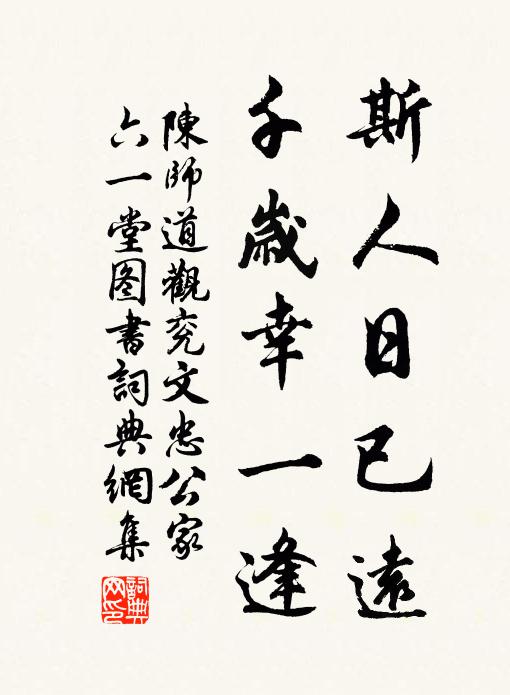 斯人日已遠
千歲幸一逢
陳師道觀兖文忠公家
六一堂图書詞典網集
詞典网印